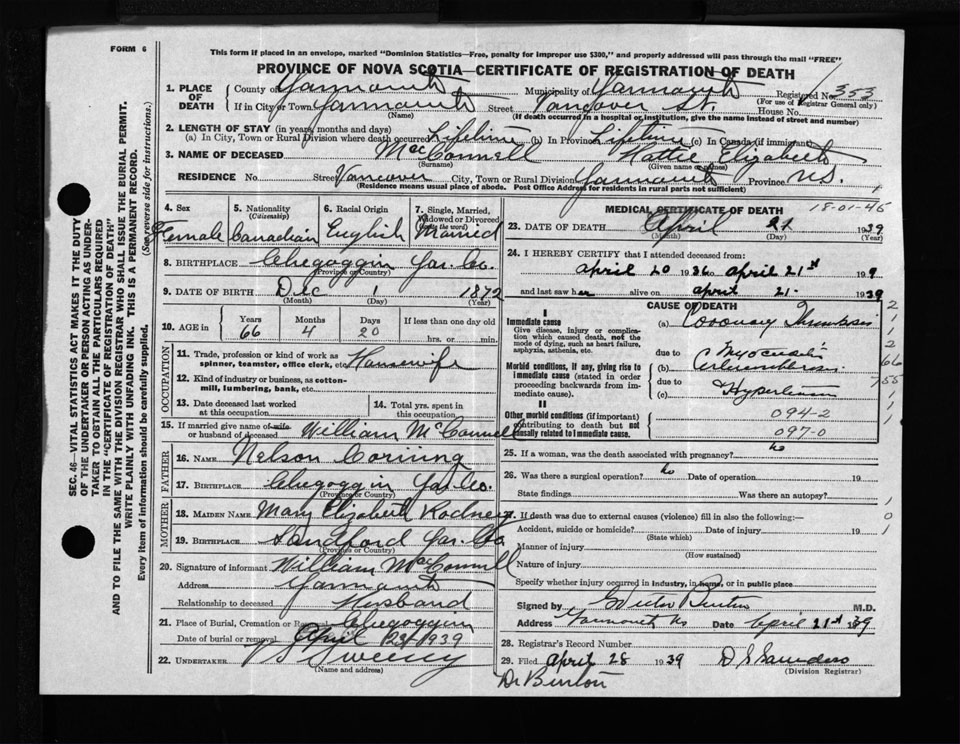 FORM 6
This form if placed in an envelope, marked "Dominion Statistics—Free, penalty for improper use $300," and properly addressed will pass through the mail "FREE"
PROVINCE OF NOVA SCOTIA—CERTIFICATE OF REGISTRATION OF DEATH
SEC. 46—VITAL STATISTICS ACT MAKES IT THE DUTY
OF THE UNDERTAKER OR PERSON ACTING AS UNDER-
TAKER TO OBTAIN ALL THE PARTICULARS REQUIRED
IN THE "CERTIFICATE OF REGISTRATION OF DEATH"
AND TO FILE THE SAME WITH THE DIVISION REGISTRAR WHO SHALL ISSUE THE BURIAL PERMIT.
WRITE PLAINLY WITH UNFADING INK. THIS IS A PERMANENT RECORD.
Every item of information should be carefully supplied. (See reverse side for instructions.)
1. PLACE OF DEATH
County of Yarmouth Municipality of Yarmouth Registered No. 353
(For use of Registrar General only)
If in City or Town Yarmouth Street Vancover St. House No.
(Name)
(If death occurred in a hospital or institution, give the name instead of street and number)
2. LENGTH OF STAY (in years, months and days)
(a) In City, Town or Rural Division where death occurred Lifetime (b) In Province Lifetime (c) In Canada (if immigrant)
3. NAME OF DECEASED MacConnell Hattie Elizabeth
(Surname) (Given name or names)
RESIDENCE No. Street Vancover City, Town or Rural Division Yarmouth Province N.S.
(Residence means usual place of abode. Post Office Address for residents in rural parts not sufficient)
4. Sex
Female
5. Nationality
(Citizenship)
Canadian
6. Racial Origin
English
7. Single, Married,
Widowed or Divorced
(write the word)
Married
8. BIRTHPLACE Chegoggin Yar. Co.
(Province or Country)
9. DATE OF BIRTH Dec 1 1872
(Month) (Day) (Year)
10. AGE in
Years Months Days If less than one day old
66 4 20 hrs. or min.
OCCUPATION
11. Trade, profession or kind of work as
spinner, teamster, office clerk, etc. Housewife
12. Kind of industry or business, as cotton-
mill, lumbering, bank, etc.
13. Date deceased last worked
at this occupation
14. Total yrs. spent in
this occupation
15. If married give name of wife
or husband of deceased William McConnell
FATHER
16. NAME Nelson Corning
17. BIRTHPLACE Chegoggin Yar. Co.
(Province or Country)
MOTHER
18. MAIDEN NAME Mary Elizabeth Rodney
19. BIRTHPLACE Sandford Yar. Co
(Province or Country)
20. Signature of informant William MacConnell
Address Yarmouth
Relationship to deceased Husband
21. Place of Burial, Cremation or Removal Chegoggin
Date of burial or removal April 23 1939
22. UNDERTAKER Sweeny
(Name and address)
MEDICAL CERTIFICATE OF DEATH
18-01-46
23. DATE OF DEATH April 21 1939
(Month) (Day) (Year)
24. I HEREBY CERTIFY that I attended deceased from:
April 20 1936 to April 21st 19
and last saw her alive on April 21 1939
CAUSE OF DEATH
I
Immediate cause
Give disease, injury or complica-
tion which caused death, not the
mode of dying, such as heart failure,
asphyxia, asthenia, etc.
(a) Coronary Thrombosis
due to
(b) Myocarditis
due to
(c) Hypertension
Morbid conditions, if any, giving rise to
immediate cause (stated in order
proceeding backwards from im-
mediate cause).
II
Other morbid conditions (if important)
contributing to death but not
causally related to immediate cause.
094-2
097-0
25. If a woman, was the death associated with pregnancy? no
26. Was there a surgical operation? no Date of operation 19
State findings Was there an autopsy?
27. If death was due to external causes (violence) fill in also the following:—
Accident, suicide or homicide? Date of injury 19
(State which)
Manner of injury
(How sustained)
Nature of injury
Specify whether injury occurred in industry, in home, or in public place
Signed by Burton M.D.
Address Yarmouth NS Date April 21st 39
28. Registrar's Record Number
29. Filed April 28 1939 D S Saunders
(Division Registrar)
Dr Burton